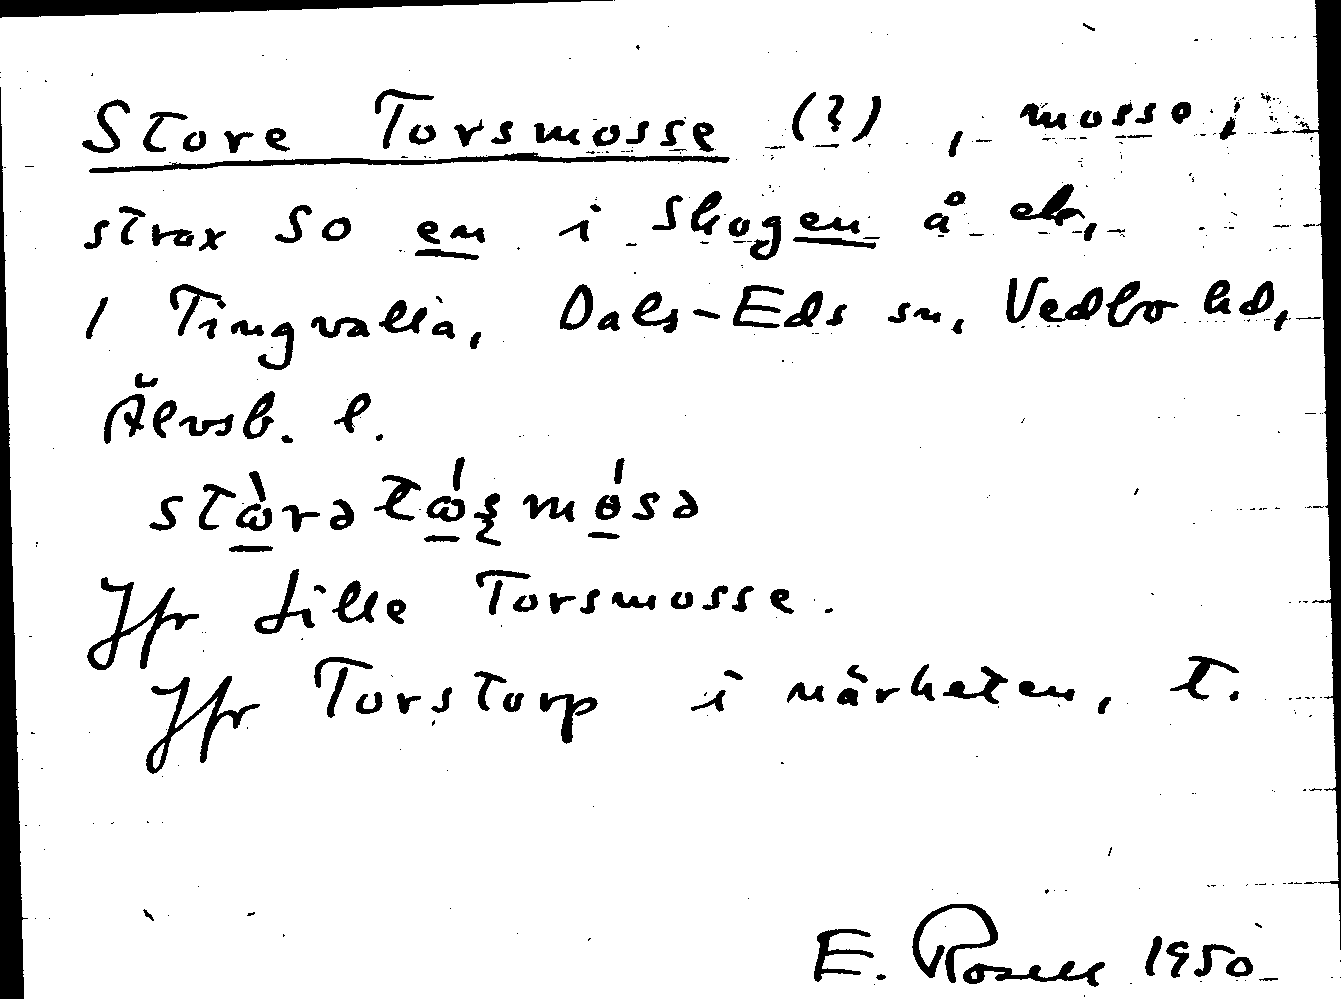 Store Torsmosse (?), mosse,
strax SO en i Skogen å ek,
1 Tingvalla, Dals-Eds sn, Vedbo hd,
Älvsb. l.
stɷ̀rə tɷ́ʂmósə
Jfr Lille Torsmosse.
Jfr Torstorp i närheten, t.
E. Rosell 1950